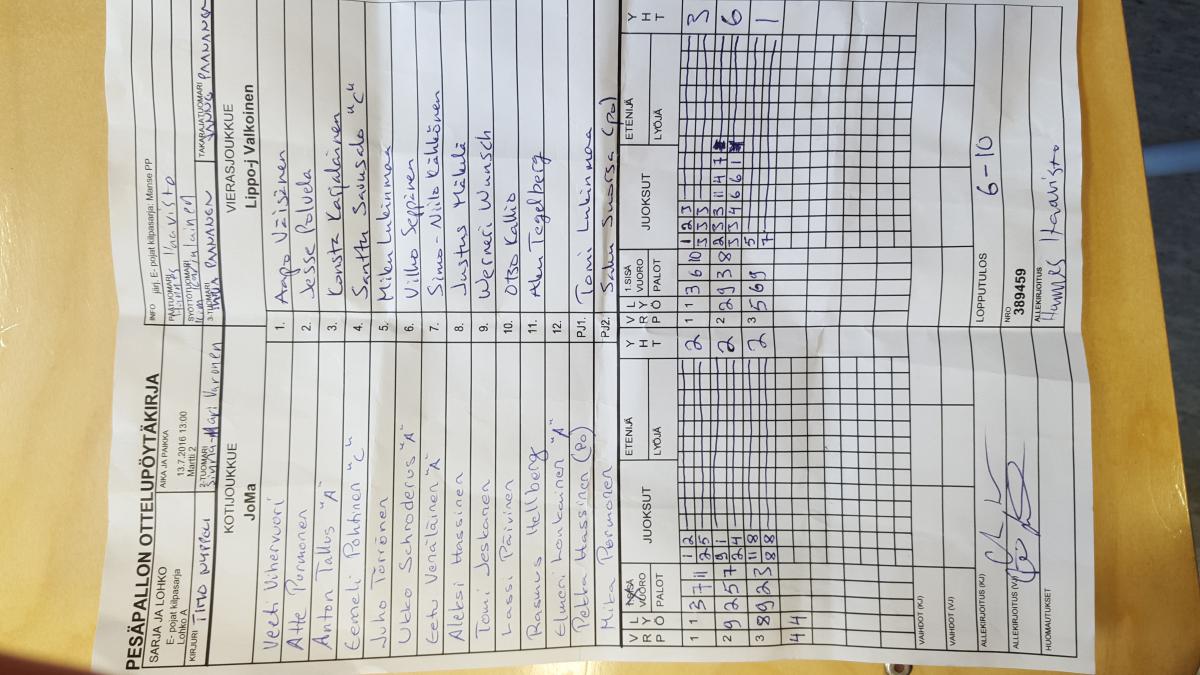 PESÄPALLON OTTELUPÖYTÄKIRJA
SARJA JA LOHKO
E- pojat kilpasarja
Lohko A
AIKA JA PAIKKA
13.7.2016 13:00
Martti 2
INFO järj. E- pojat kilpasarja: Manse PP
PÄÄTUOMARI
Hannes Haavisto
SYÖTTÖTUOMARI
KIRJURI TIMO
2-TUOMARI
Sinna-Mari Varonen
3-TUOMARI
PAANANEN
TAKARAJATUOMARI
JANNE PAANANEN
KOTIJOUKKUE
JoMa
VIERASJOUKKUE
Lippo-j Valkoinen
Veeti Vihervuori 1. Aapo Väisänen
Atte Purmonen 2. Jesse Polvela
Anton Tallus "A" 3. Konsta Karjalainen
Eemeli Pohtinen "C" 4. Santtu Savusalo "C"
Juho Törrönen 5. Miku Lukinmaa
Ukko Schroderus "A" 6. Vilho Seppänen
Eetu Venäläinen "A" 7. Simo-Niilo Kähkönen
Aleksi Hassinen 8. Justus Mäkelä
Tomi Jeskanen 9. Werneri Wunsch
Lassi Päivinen 10. Otso Kallio
Rasmus Hellberg 11. Aken Tegelberg
Elmeri "A" 12.
Pekka Hassinen (PO) PJ1. Tomi Lukinmaa
Mika Purmonen PJ2. Saku Suorsa (PO)
V R P L Y Ö SISÄ VUORO PALOT JUOKSUT ETENIJÄ LYÖJÄ Y H T V R P L Y Ö 1.SISÄ VUORO PALOT JUOKSUT ETENIJÄ LYÖJÄ Y H T
1 1 3 7 11 1 2 2 1 1 3 6 10 1 2 3 3
2 5 3 3 3
2 9 2 5 7 9 1 2 2 2 9 3 8 2 3 3 11 4 7 6
2 4 3 3 4 6 6 1
3 8 9 2 3 11 8 2 3 5 6 9 5 1
8 8 7
4 4
VAIHDOT (KJ)
VAIHDOT (VJ)
LOPPUTULOS 6-10
ALLEKIRJOITUS (KJ)
ALLEKIRJOITUS (VJ)
NRO
389459
ALLEKIRJOITUS
Hannes Haavisto
HUOMAUTUKSET